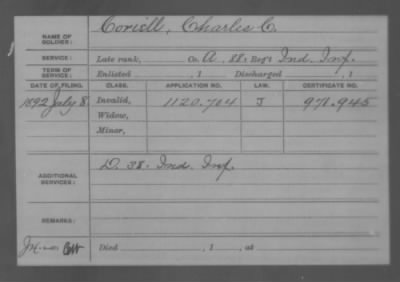 NAME OF SOLDIER: Coriell, Charles C.
SERVICE: Late rank, Co. A. 88, Reg't Ind. Inf.
TERM OF SERVICE: Enlisted , 1 Discharged , 1
DATE OF FILING. CLASS. APPLICATION NO. LAW. CERTIFICATE NO.
1892 July 8 Invalid, 1120.704 J 978.945
Widow,
Minor,
ADDITIONAL SERVICES: D. 38. Ind. Inf.
REMARKS:
Died , 1 , at